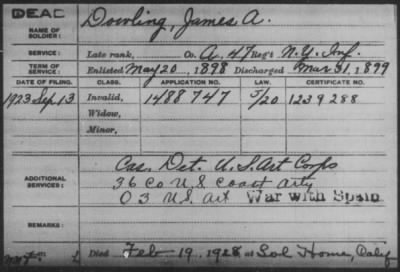 DEAD
NAME OF SOLDIER: Dowling, James A.
SERVICE: Late rank, Co. A, 47 Reg't N.Y. Inf.
TERM OF SERVICE: Enlisted May 20, 1898 Discharged Mar 31, 1899
DATE OF FILING. CLASS. APPLICATION NO. LAW. CERTIFICATE NO.
1923 Sep 13 Invalid, 1488747 5/20 1239288
Widow,
Minor,
ADDITIONAL SERVICES: Cas. Det. U.S. Art Corps
36 Co U.S. Coast Arty
O 3 U.S. Art War with Spain
REMARKS:
Died Feb 19, 1928, at Sol Home, Calif